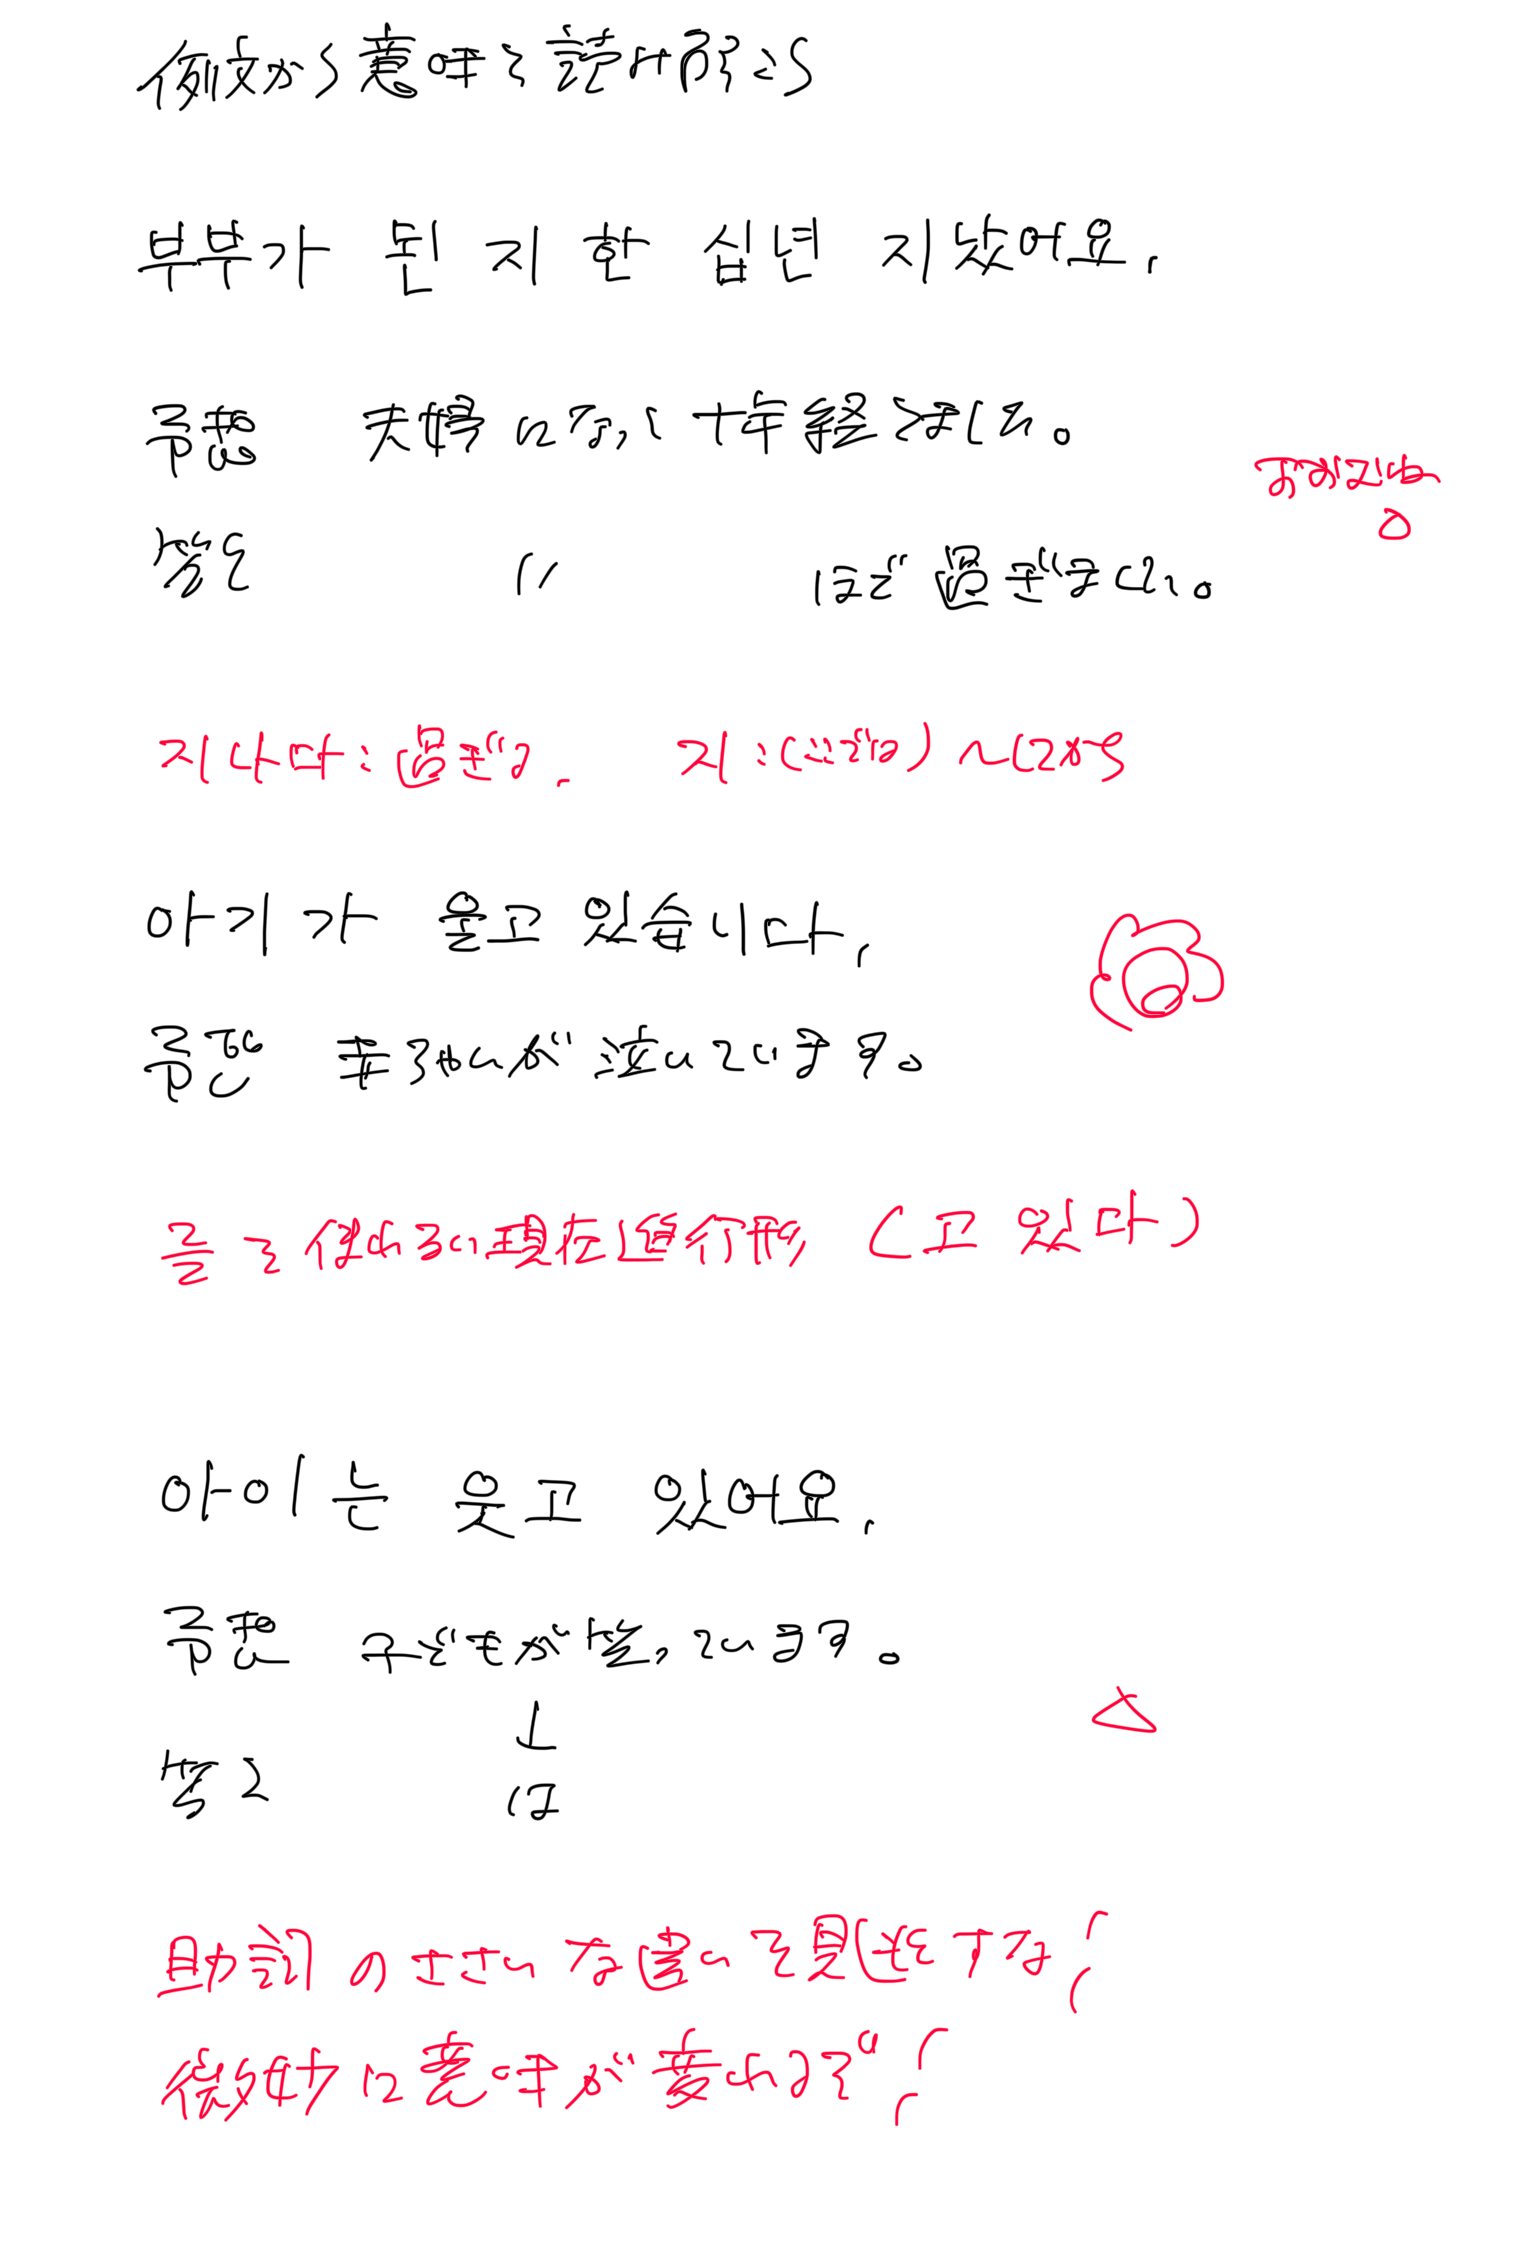 例文から意味を読み解こう
부부가 된 지 한 십년 지났어요.
予想 夫婦になって十年経ちました。
おおむね
答え 〃 ほど過ぎました。
지나다:過ぎる. 지:(ここでは)〜してから
아기가 울고 있습니다.
予想 赤ちゃんが泣いています。
를を使わない現在進行形(고 있다)
아이는 웃고 있어요.
予想 子どもが笑っています。
↓
答え は
助詞のささいな違いを見逃すな!
微妙に意味が変わるぞ!